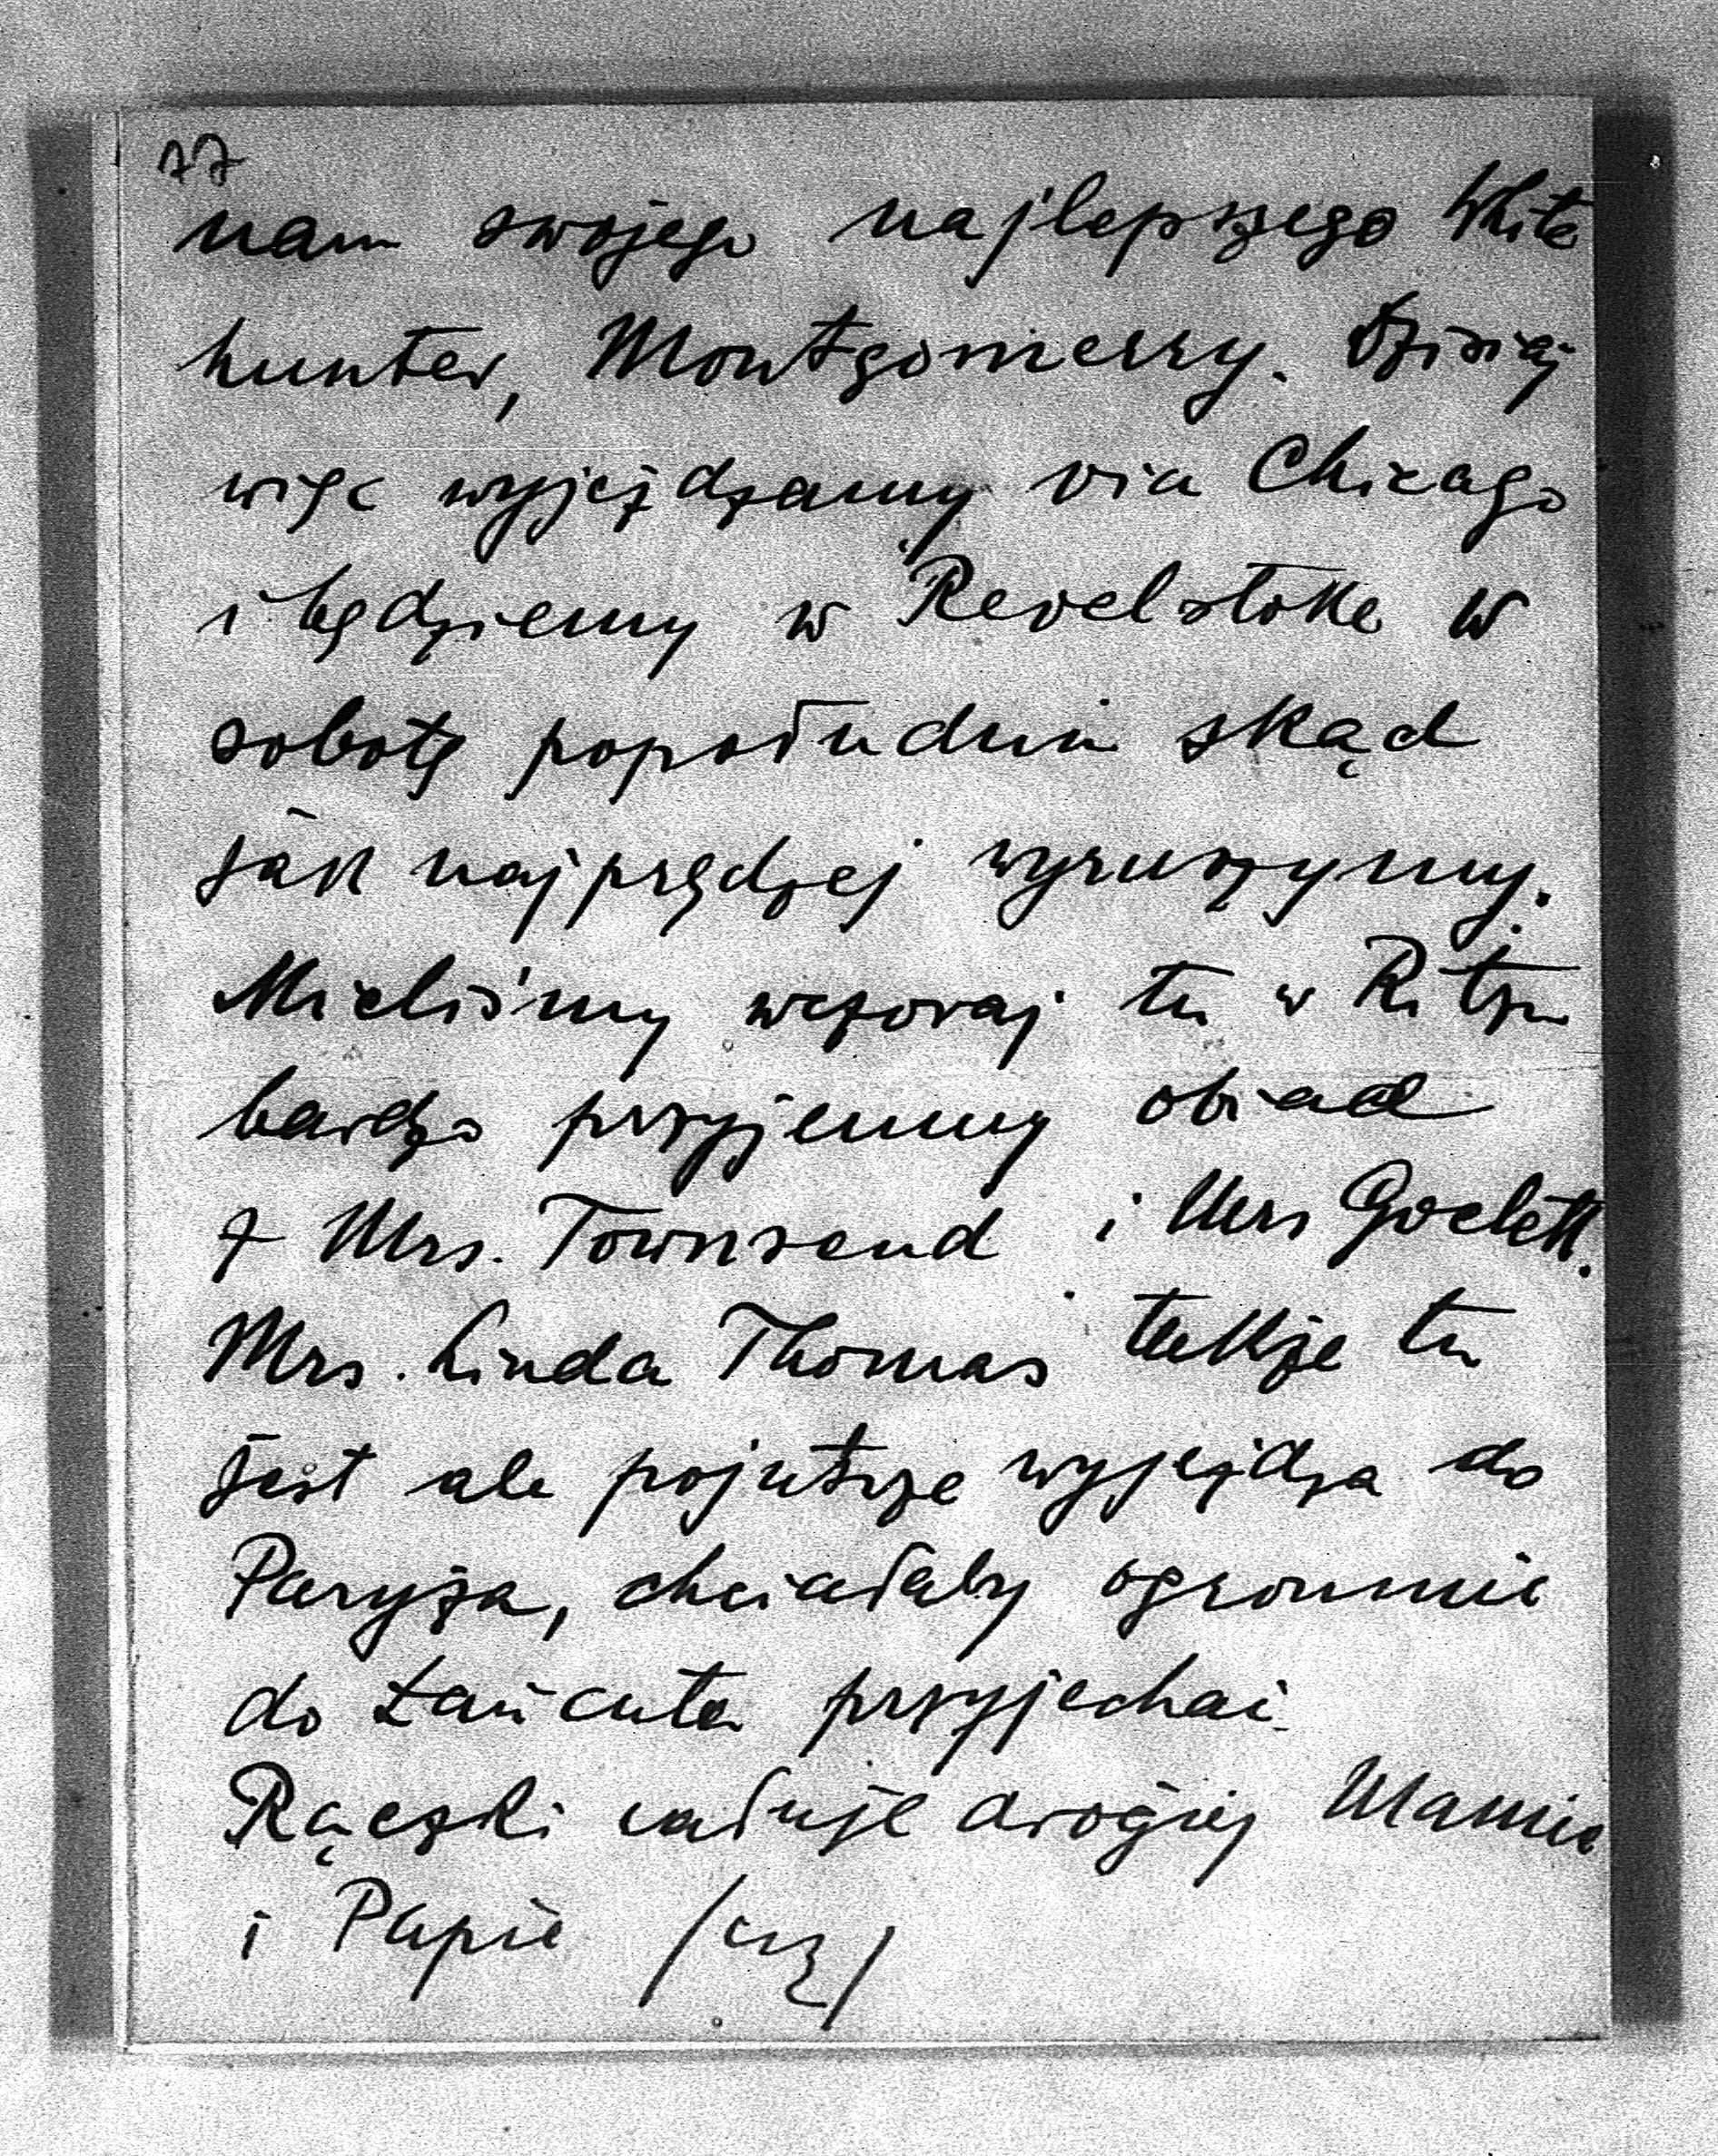 77
nam swojego najlepszego White
hunter, Montgomerry. Dzisiaj
więc wyjeżdzamy via Chicago
i będziemy w Revelstoke w
sobotę popołudniu skąd
jak najprędzej wyruszymy.
Mieliśmy wczoraj tu w Ritzu
bardzo przyjemny obiad
z Mrs. Townsend i Mrs Goelett.
Mrs. Linda Thomas także tu
jest ale pojutrze wyjeżdza do
Paryża, chciałaby ogromnie
do Łańcuta przyjechać
Rączki całuję drogiej Mamie
i Papie